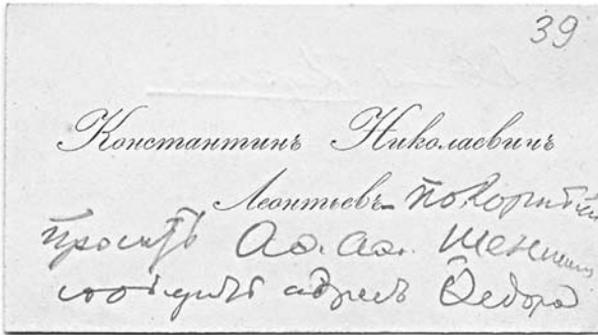 39
Константинъ Николаевичъ
Леонтьевъ покорнѣйше
проситъ Аѳ. Аѳ. Шеншин
сообщить адресъ Ѳедора